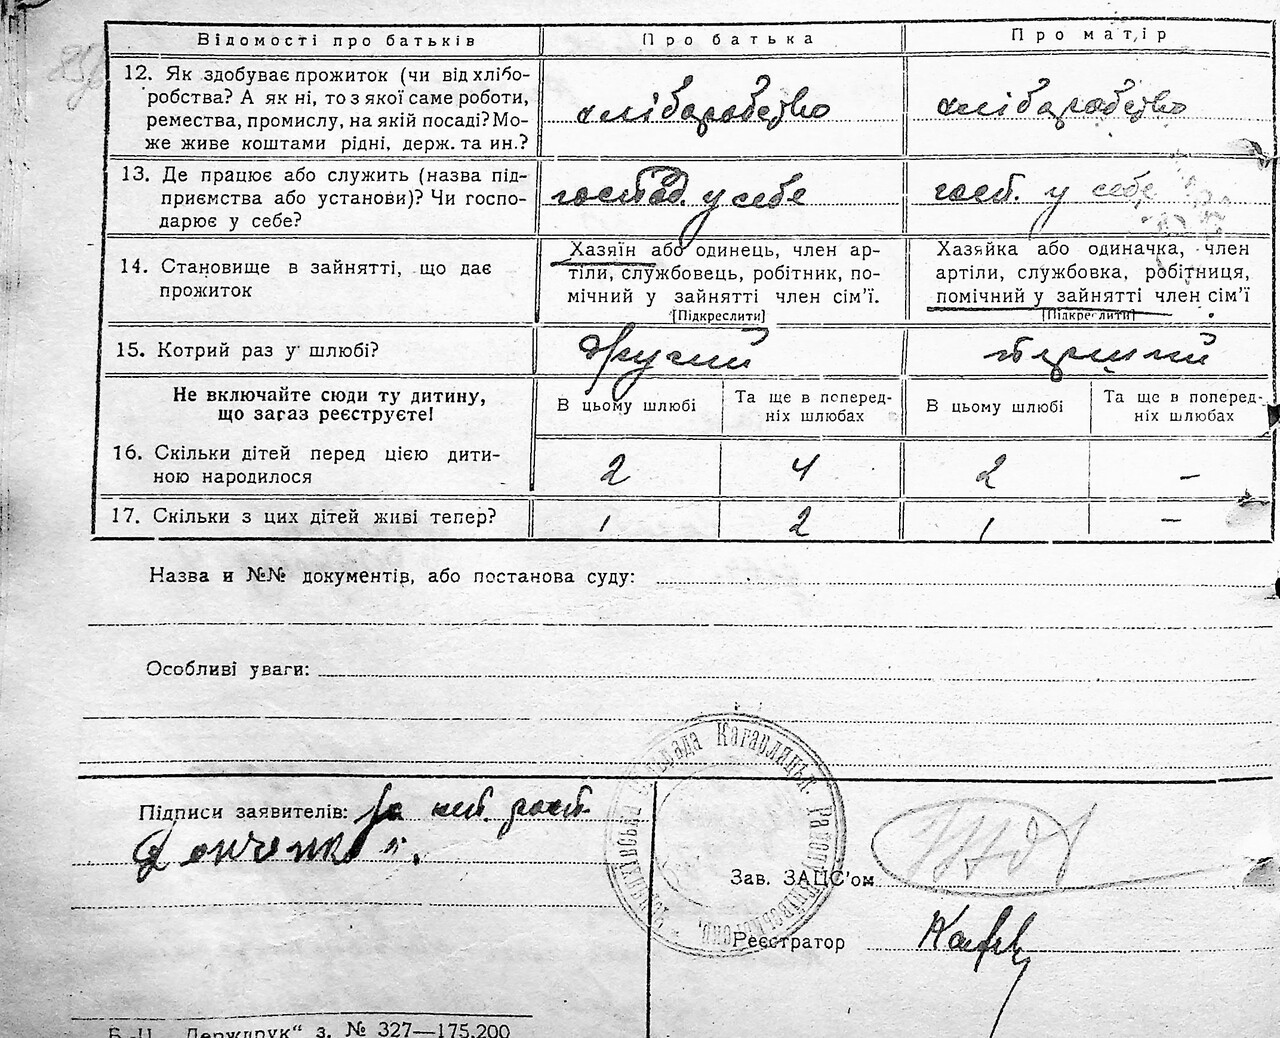 Відомості про батьків Про батька Про матір
12. Як здобуває прожиток (чи від хлібо-
робства? А як ні, то з якої саме роботи,
ремества, промислу, на якій посаді? Мо-
же живе коштами рідні, держ. та ин.?
хліборобство хліборобство
13. Де працює або служить (назва під-
приємства або установи)? Чи госпо-
дарює у себе?
господ. у себе госп. у себе
14. Становище в зайнятті, що дає
прожиток
Хазяїн або одинець, член ар-
тіли, службовець, робітник, по-
мічний у зайнятті член сім’ї.
[Підкреслити]
Хазяйка або одиначка, член
артіли, службовка, робітниця,
помічний у зайнятті член сім’ї
[Підкреслити]
15. Котрий раз у шлюбі? другий перший
Не включайте сюди ту дитину,
що загаз реєструєте!
В цьому шлюбі Та ще в поперед-
ніх шлюбах В цьому шлюбі Та ще в поперед-
ніх шлюбах
16. Скільки дітей перед цією дити-
ною народилося 2 4 2 -
17. Скільки з цих дітей живі тепер? 1 2 1 -
Назва и №№ документів, або постанова суду:
Особливі уваги:
Підписи заявителів: За
Донченко
Зав. ЗАЦС’ом
Реєстратор
Б.-Ц. „Держдрук“ з. № 327—175.200